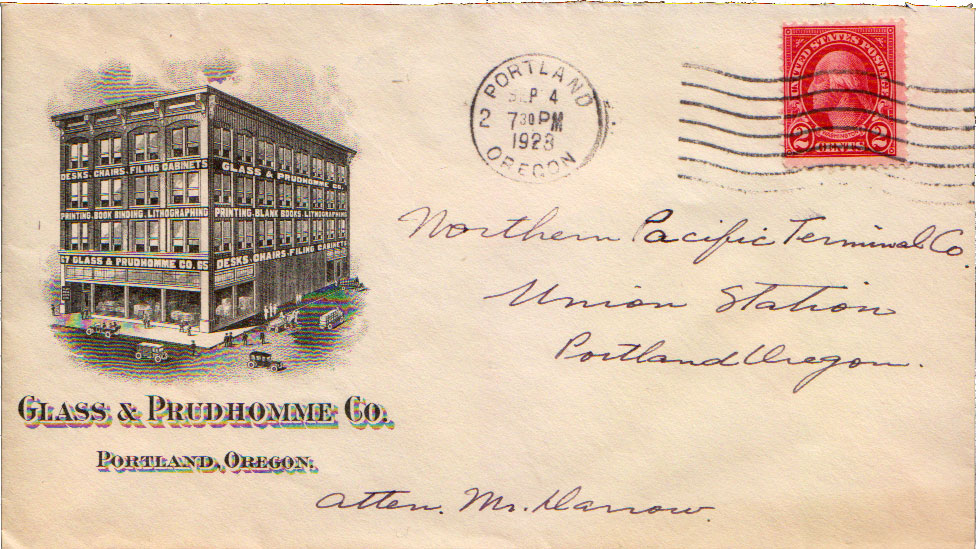 PORTLAND
SEP 4
2 7 30 PM
1923
OREGON
UNITED STATES POSTAGE
WASHINGTON
2 CENTS 2
DESKS, CHAIRS, FILING CABINETS
GLASS & PRUDHOMME CO.
PRINTING, BOOK BINDING, LITHOGRAPHING
PRINTING, BLANK BOOKS, LITHOGRAPHING
67 GLASS & PRUDHOMME CO. 65
DESKS, CHAIRS-FILING CABINETS
GLASS & PRUDHOMME CO.
PORTLAND, OREGON.
Northern Pacific Terminal Co.
Union Station
Portland Oregon.
Atten. Mr. Darrow.